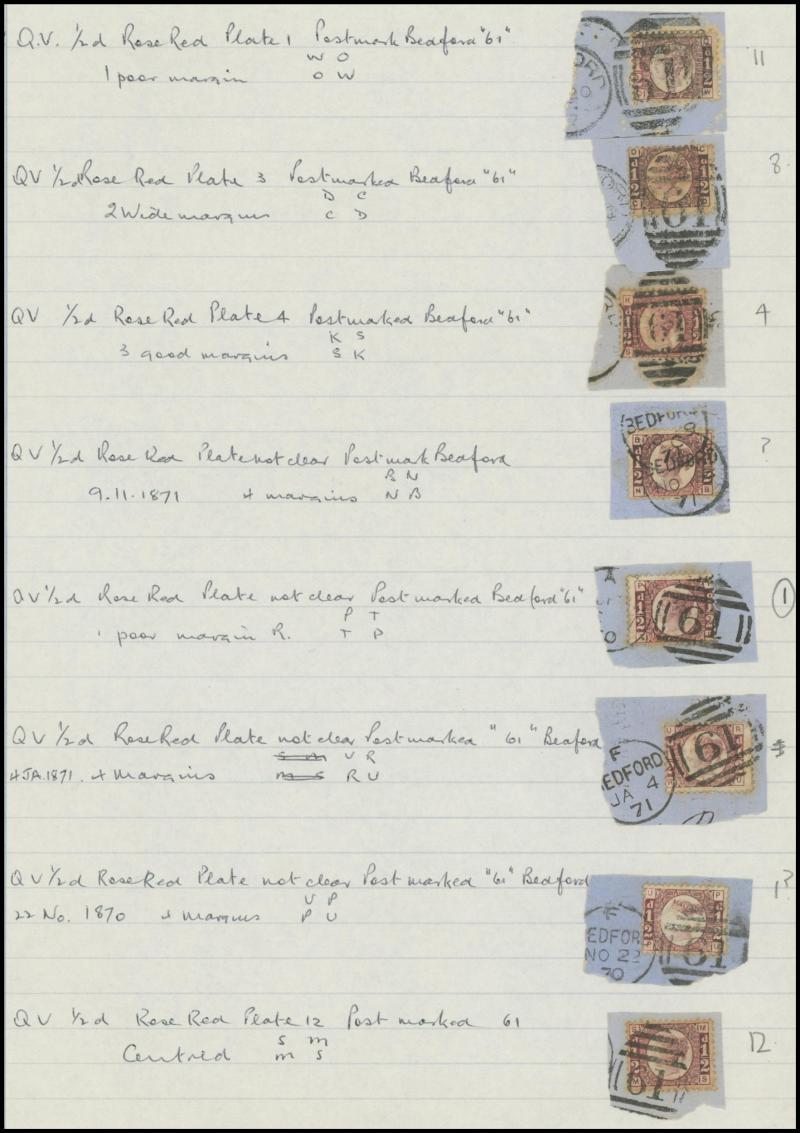 Q.V. ½d Rose Red Plate 1 Postmark Bedford "61" 11
W O
1 poor margin O W
QV ½d Rose Red Plate 3 Postmarked Bedford "61" 8
D C
2 Wide margins C D
QV ½d Rose Red Plate 4 Postmarked Bedford "61" 4
K S
3 good margins S K
QV ½d Rose Red Plate not clear Postmark Bedford ?
B N
9.11.1871 4 margins N B
BEDFORD
BEDFORD
NO
71
QV ½d Rose Red Plate not clear Postmarked Bedford "61" 1
P T
1 poor margin R. T P
61
QV ½d Rose Red Plate not clear Postmarked "61" Bedford
S M U R
4 JA.1871. 4 Margins M S R U
F
BEDFORD
JA 4
71
61
QV ½d Rose Red Plate not clear Post marked "61" Bedford 1?
U P
22 No. 1870 4 margins P U
F
EDFOR
NO 22
70
61
QV ½d Rose Red Plate 12 Post marked 61 12
S M
Centred M S
61